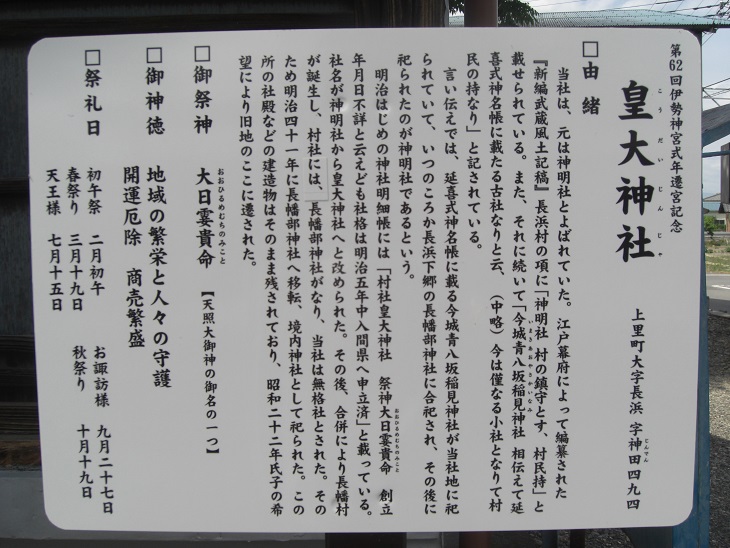 第62回伊勢神宮式年遷宮記念
皇大神社
こうだいじんじや
上里町大字長浜 字神田四九四
とんでん
□由緒
当社は、元は神明社とよばれていた。江戸幕府によって編纂された
『新編武蔵風土記稿』長浜村の項に「神明社 村の鎮守とす、村民持」と
載せられている。また、それに続いて「今城青八坂稲見神社 相伝えて延
いまきあおやさかいなみ
喜式神名帳に載たる古社なりと云、（中略）今は僅なる小社となりて村
民の持なり」と記されている。
言い伝えでは、延喜式神名帳に載る今城青八坂稲見神社が当社地に祀
られていて、いつのころか長浜下郷の長幡部神社に合祀され、その後に
祀られたのが神明社であるという。
明治はじめの神社明細帳には「村社皇大神社 祭神大日孁貴命 創立
おおひるめむちのみこと
年月日不詳と云えども社格は明治五年中入間県へ申立済」と載っている。
社名が神明社から皇大神社へと改められた。その後、合併により長幡村
が誕生し、村社には、長幡部神社がなり、当社は無格社とされた。その
ため明治四十一年に長幡部神社へ移転、境内神社として祀られた。この
所の社殿などの建造物はそのまま残されており、昭和二十二年氏子の希
望により旧地のここに遷された。
□御祭神 大日孁貴命 【天照大御神の御名の一つ】
おおひるめむちのみこと
□御神徳 地域の繁栄と人々の守護
開運厄除 商売繁盛
□祭礼日 初午祭 二月初午 お諏訪様 九月二十七日
春祭り 三月十九日 秋祭り 十月十九日
天王様 七月十五日